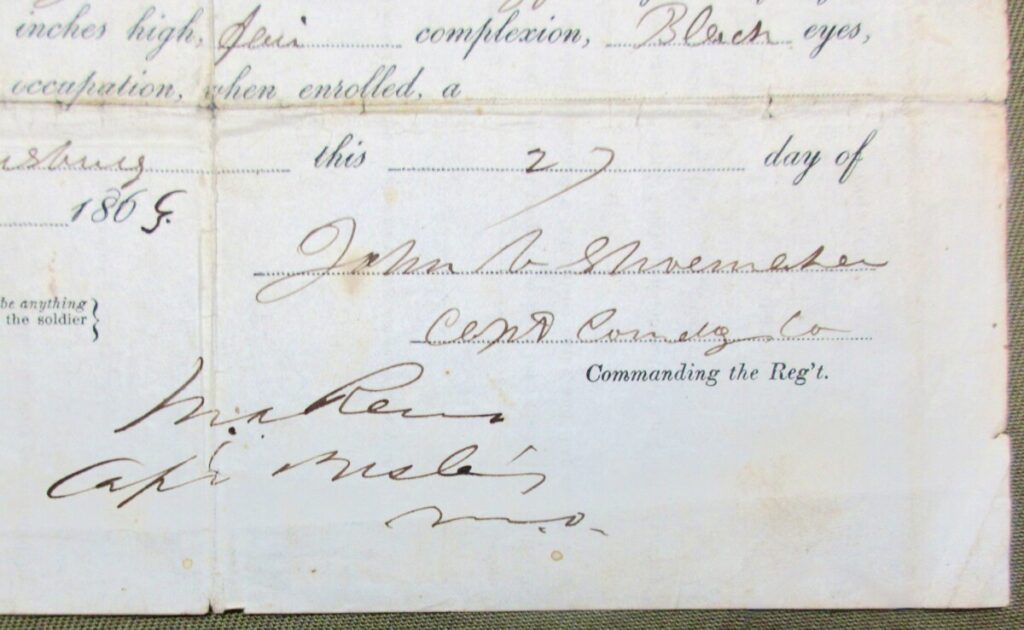 inches high, Fair complexion, Black eyes,
occupation, when enrolled, a
this 27 day of
1865.
John Shoemaker
Capt Comdg Co
be anything
the soldier}
Commanding the Reg't.
M.A. Reno
Capt
M.O.